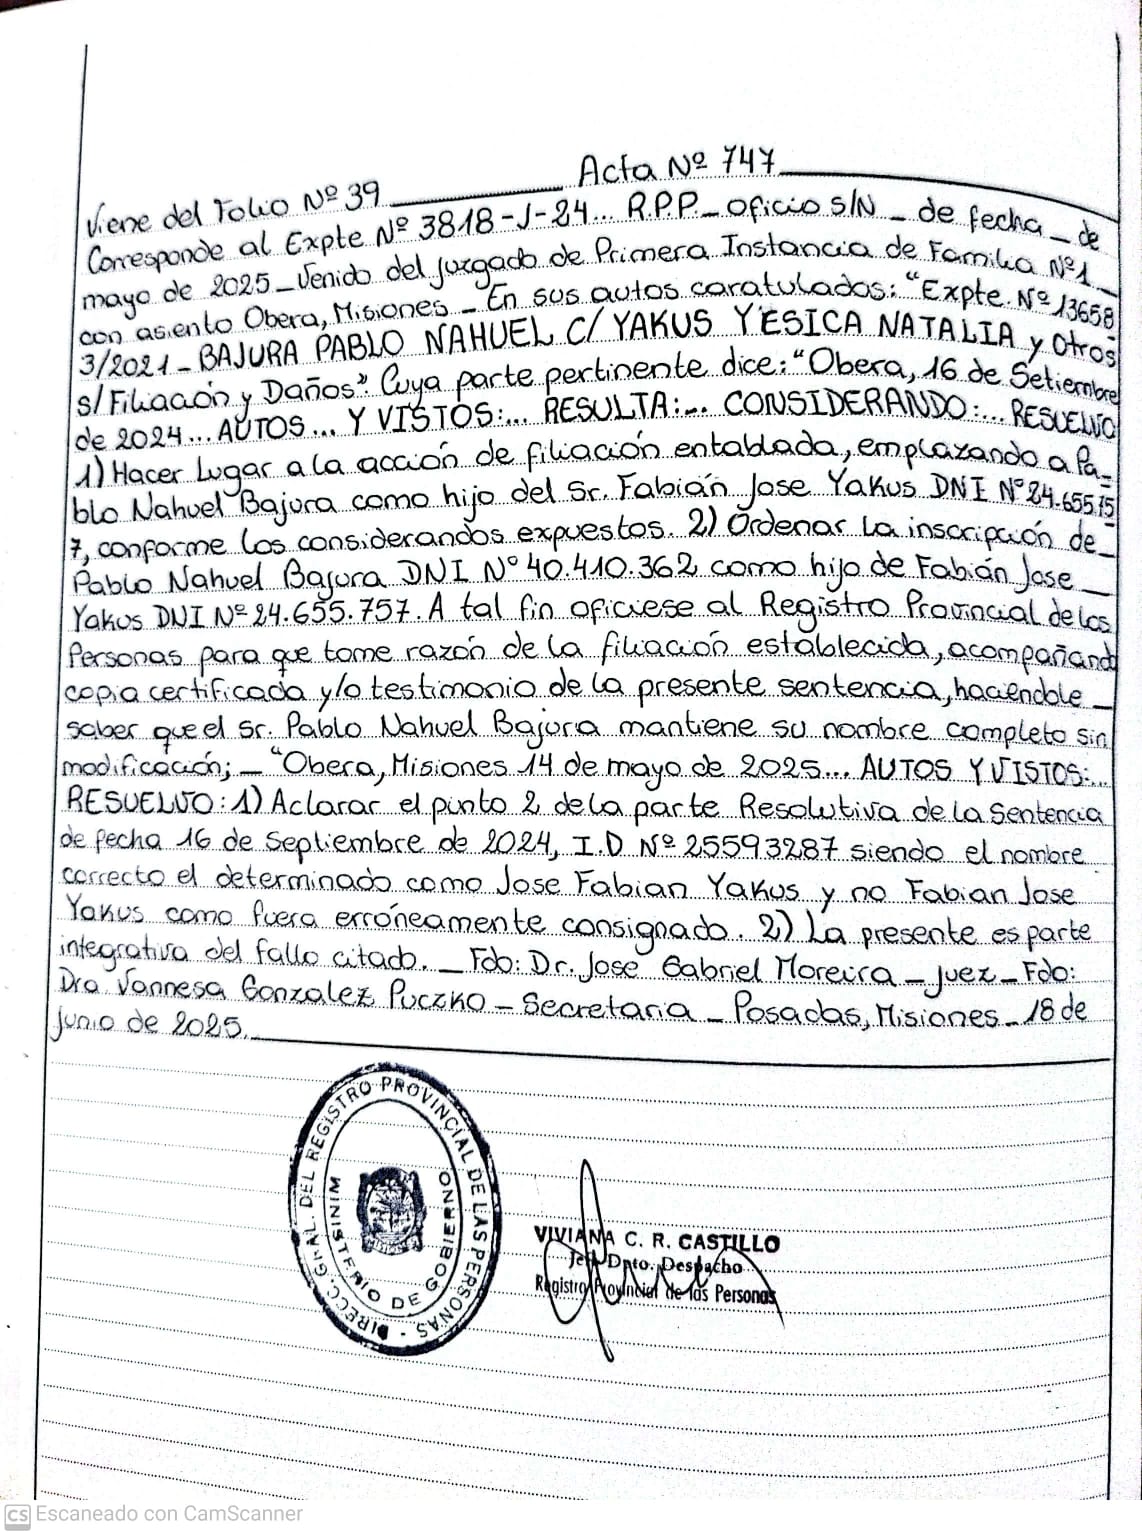 Acta Nº 747
Viene del Folio Nº 39
Corresponde al Expte Nº 3818-J-24... R.P.P._ oficio s/N _ de fecha _ de
mayo de 2025_Venido del Juzgado de Primera Instancia de Familia Nº1_
con asiento Obera, Misiones _ En sus autos caratulados: "Expte. Nº 13658
3/2021_ BAJURA PABLO NAHUEL C/ YAKUS YESICA NATALIA y Otros
s/ Filiación y Daños". Cuya parte pertinente dice: "Obera, 16 de Setiembre
de 2024... AUTOS... Y VISTOS:... RESULTA:... CONSIDERANDO:... RESUELVO
1) Hacer Lugar a la acción de filiación entablada, emplazando a Pa-
blo Nahuel Bajura como hijo del Sr. Fabián Jose Yakus DNI Nº 24.655.75
7, conforme los considerandos expuestos. 2) Ordenar la inscripción de_
Pablo Nahuel Bajura DNI Nº 40.410.362 como hijo de Fabián Jose_
Yakus DNI Nº 24.655.757. A tal fin oficiese al Registro Provincial de las
Personas para que tome razón de la filiación establecida, acompañando
copia certificada y/o testimonio de la presente sentencia, haciéndole_
saber que el Sr. Pablo Nahuel Bajura mantiene su nombre completo sin
modificación; _ "Obera, Misiones 14 de mayo de 2025... AUTOS Y VISTOS:...
RESUELVO: 1) Aclarar el punto 2 de la parte Resolutiva de la Sentencia
de fecha 16 de Septiembre de 2024, I.D Nº 25593287 siendo el nombre
correcto el determinado como Jose Fabian Yakus y no Fabian Jose
Yakus como fuera erróneamente consignado. 2) La presente es parte
integrativa del fallo citado. _ Fdo: Dr. José Gabriel Moreira _ Juez _ Fdo:
Dra Vannesa Gonzalez Puczko _ Secretaria _ Posadas, Misiones _ 18 de
junio de 2025.
DIRECC. GRAL. DEL REGISTRO PROVINCIAL DE LAS PERSONAS -
MINISTERIO DE GOBIERNO
VIVIANA C. R. CASTILLO
Jefe Dpto. Despacho
Registro Provincial de las Personas
CS Escaneado con CamScanner